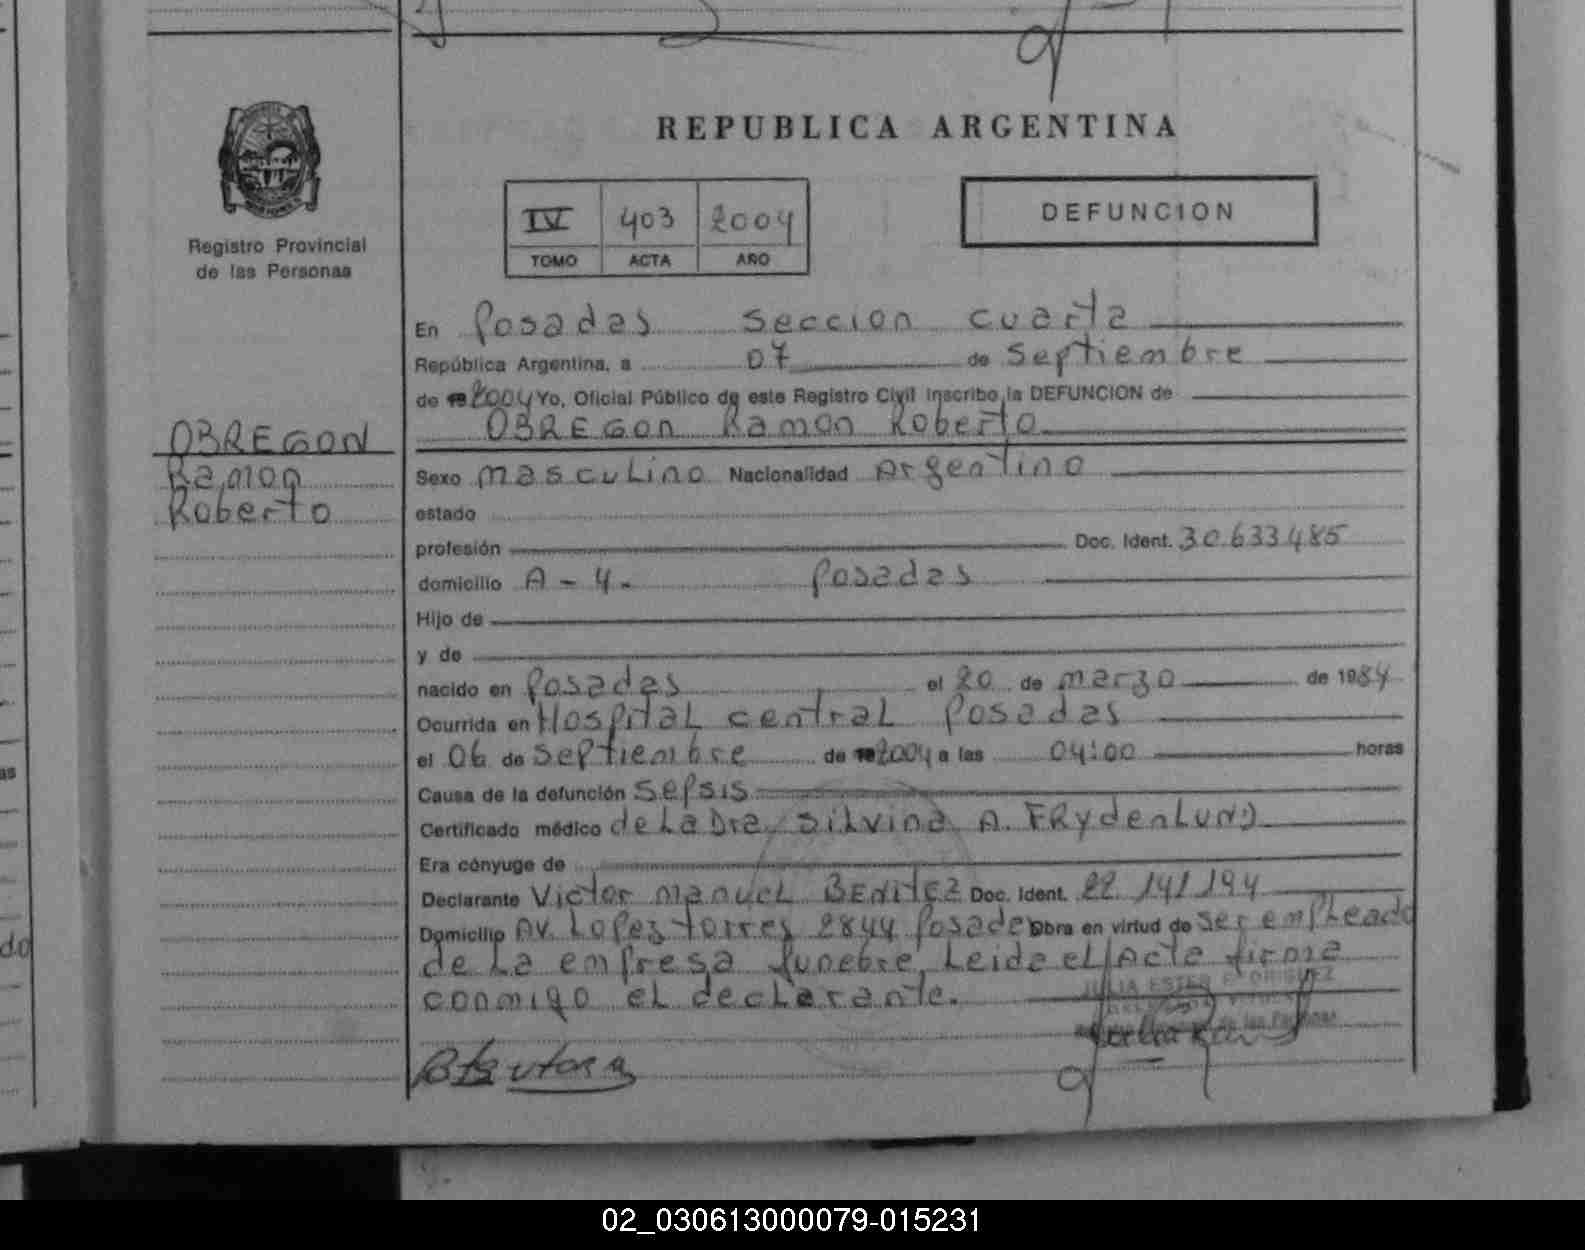 REPUBLICA ARGENTINA
Registro Provincial
de las Personas
IV 403 2004
TOMO ACTA AÑO
DEFUNCION
En Posadas seccion cuarta
República Argentina, a 07 de septiembre
de 2004 Yo, Oficial Público de este Registro Civil inscribo la DEFUNCION de
OBREGON Ramon Roberto
OBREGON
Ramon
Roberto
Sexo masculino Nacionalidad Argentino
estado
profesión Doc. Ident. 30.633.485
domicilio A-4. Posadas
Hijo de
y de
nacido en Posadas el 20 de marzo de 1984
Ocurrida en Hospital central Posadas
el 06 de septiembre de 2004 a las 04:00 horas
Causa de la defunción sepsis
Certificado médico de La Dra. Silvina A. FRydenLunD
Era cónyuge de
Declarante Victor manuel BENITEZ Doc. Ident. 22.141.194
Domicilio Av. Lopez torres 2844 Posadas Obra en virtud de ser empleado
de La empresa funebre, Leida el Acta firma
conmigo el declarante.
JULIA ESTER
de las Personas
do
as
02_030613000079-015231